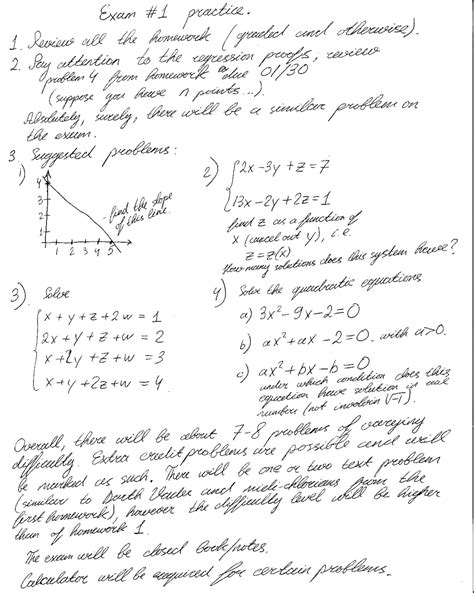 Exam #1 practice.
1. Review all the homework (graded and otherwise).
2. Pay attention to the regression proofs, review
problem 4 from homework due 01/30
(suppose you have n points...).
Absolutely, surely, there will be a similar problem on
the exam.
3. Suggested problems:
1)
4
3
2
1
1 2 3 4 5
find the slope
of this line.
2) { 2x-3y+z=7
13x-2y+2z=1
find z as a function of
x (cancel out y), i.e.
z=z(x).
How many solutions does this system have?
3) Solve
{ x+y+z+2w=1
2x+y+z+w=2
x+2y+z+w=3
x+y+2z+w=4
4) Solve the quadratic equations
a) 3x²-9x-2=0
b) ax²+ax-2=0, with a>0.
c) ax²+bx-b=0
under which condition does this
equation have solution in real
numbers (not involving √-1).
Overall, there will be about 7-8 problems of varying
difficulty. Extra credit problems are possible and will
be marked as such. There will be one or two text problem
(similar to Darth Vader and midi-chlorians from the
first homework), however the difficulty level will be higher
than of homework 1.
The exam will be closed book/notes.
Calculator will be required for certain problems.